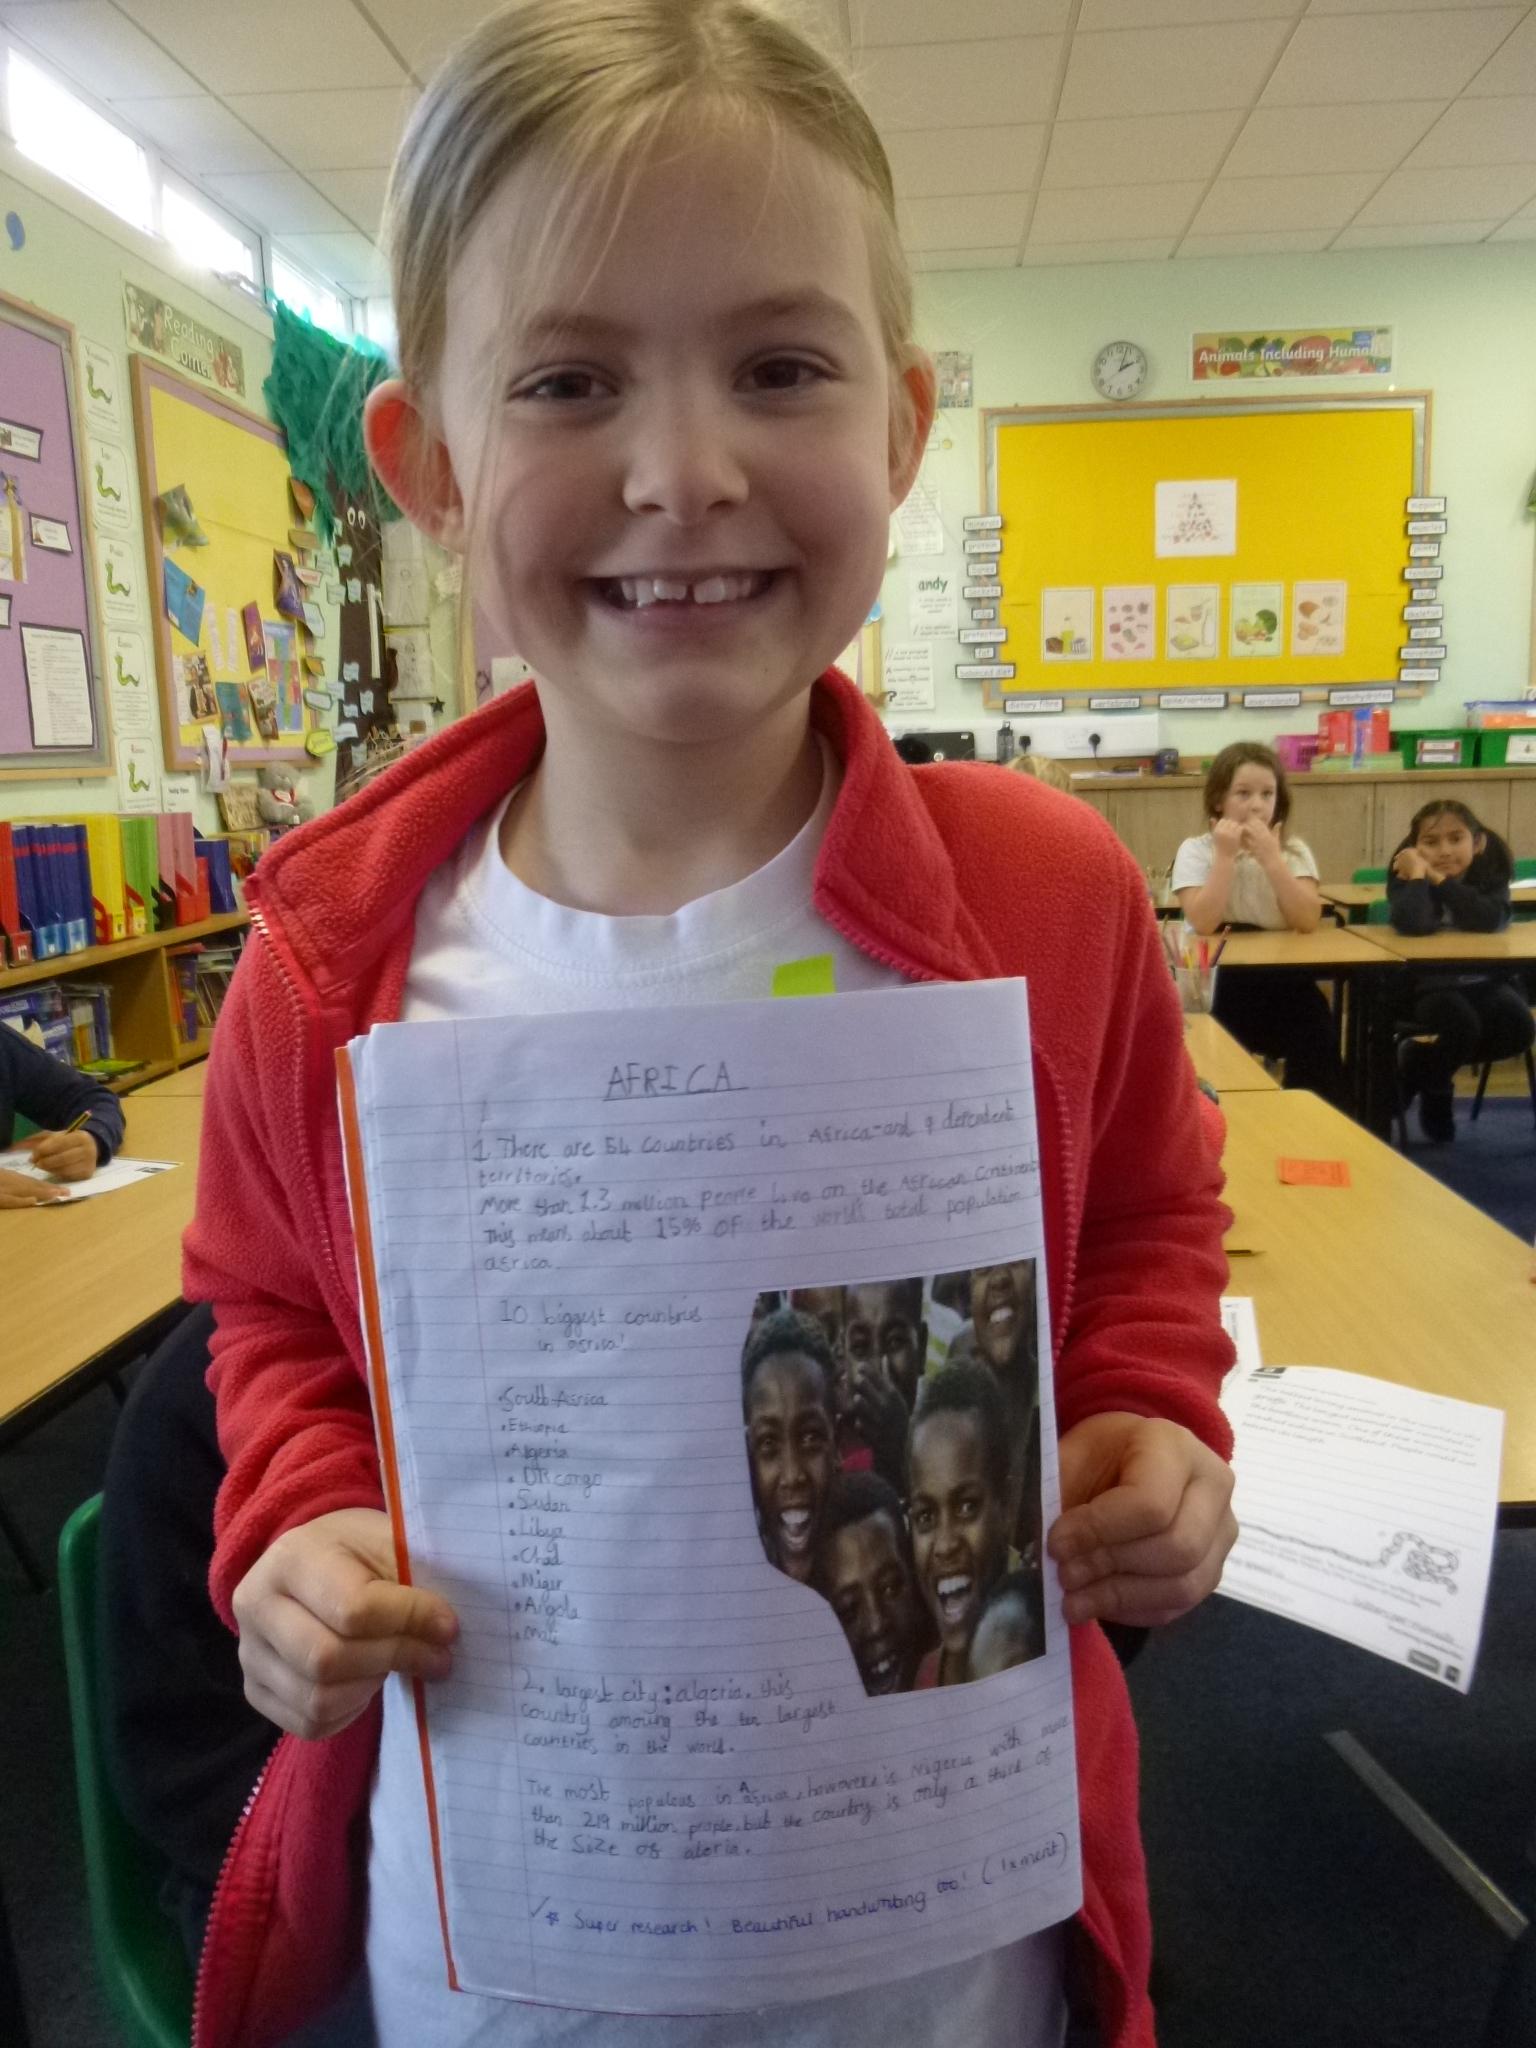 Reading
Corner
Animals Including Humans
andy
minerals
protein
protection
fat
balanced diet
dietary fibre
vertebrate
spine/vertebra
invertebrate
carbohydrates
support
muscles
joints
skeleton
water
movement
AFRICA
1 There are 54 countries in Africa-and 9 dependent
territories.
More than 1.3 million people live on the African Continent
This means about 15% of the world's total population
africa.
10 biggest countries
in africa!
• South Africa
• Ethiopia
• Algeria
• DR congo
• Sudan
• Libya
• Chad
• Niger
• Angola
• Mali
2. largest city: algeria. this
country amoung the ten largest
countries in the world.
The most populous in Africa, however, is Nigeria with more
than 219 million people, but the country is only a third of
the size of aleria.
✓ * Super research! Beautiful handwriting too! (1x merit)